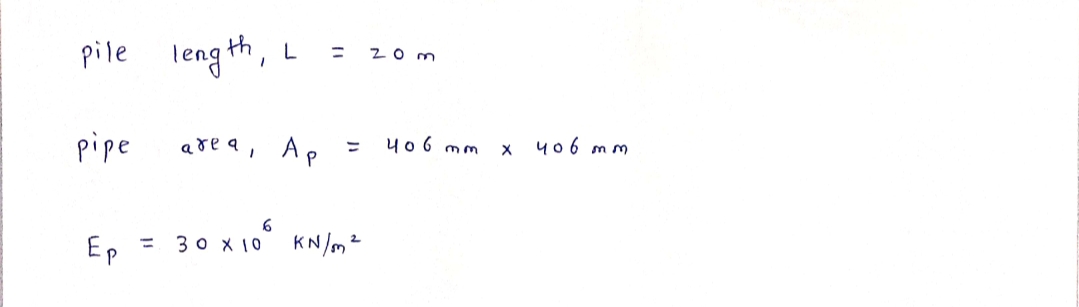 pile length, L = 20 m
pipe area, Ap = 406 mm x 406 mm
Ep = 30 x 10⁶ KN/m²